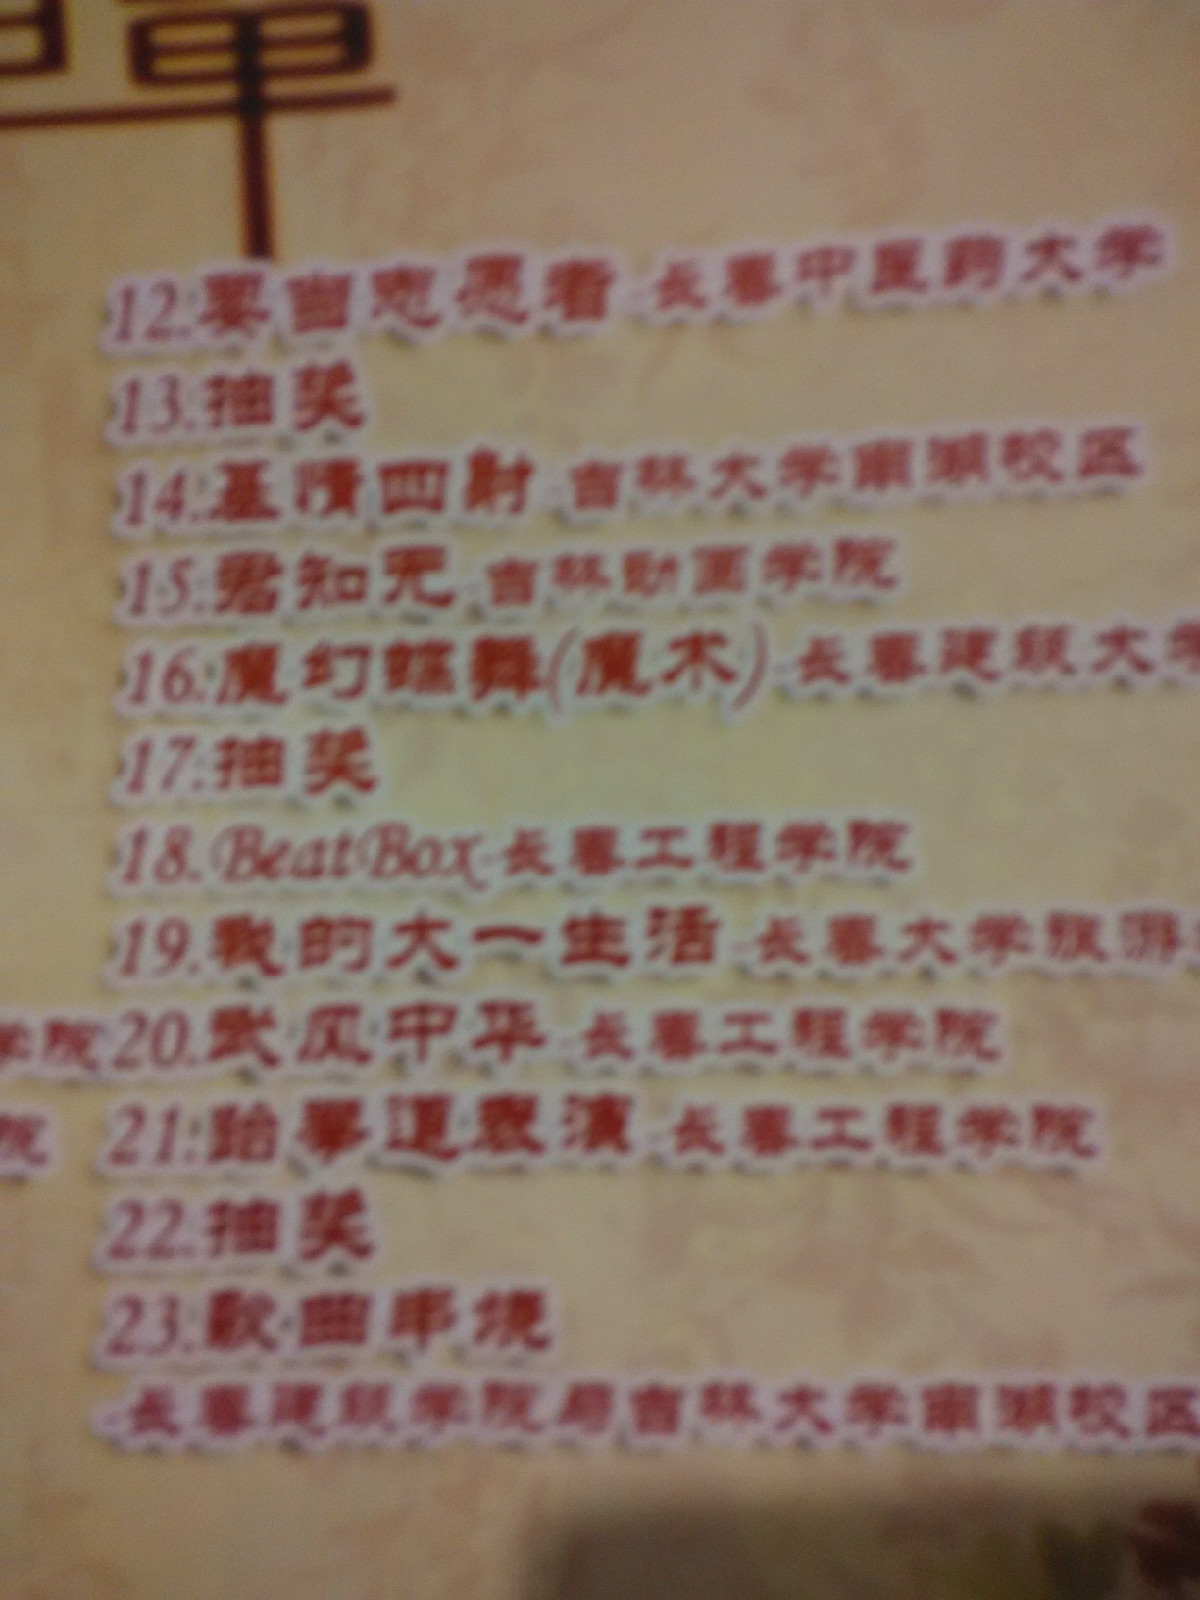 单
12.耍酱志愿者-长春中医药大学
13.抽奖
14.基情四射-吉林大学南湖校区
15.君知否-吉林动画学院
16.魔幻蝶舞(魔术)-长春建筑大学
17.抽奖
18.BeatBox-长春工程学院
19.我的大一生活-长春大学旅游
学院20.武风中华-长春工程学院
院 21.跆拳道表演-长春工程学院
22.抽奖
23.歌曲串烧
-长春建筑学院与吉林大学南湖校区